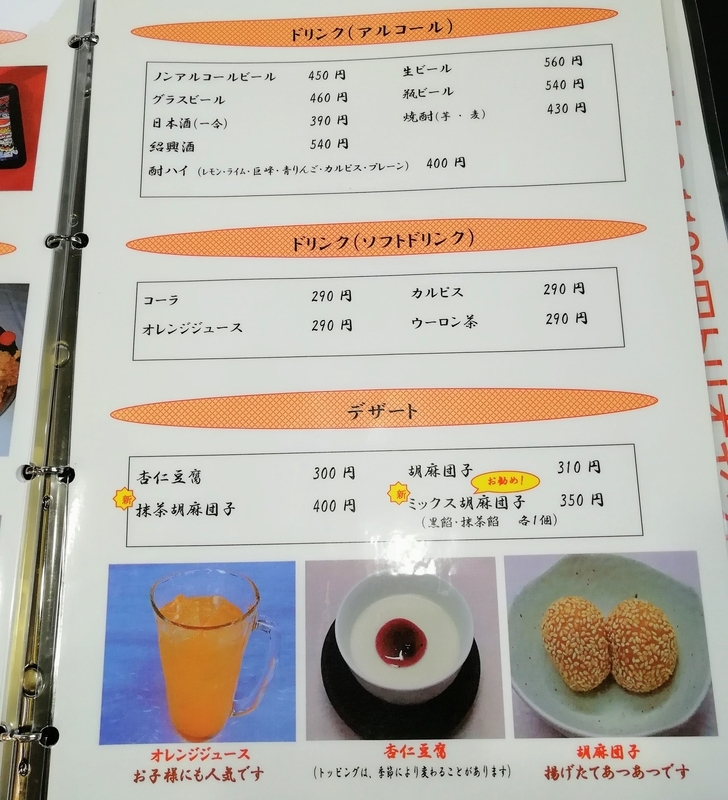 ドリンク(アルコール)
ノンアルコールビール 450 円 生ビール 560 円
グラスビール 460 円 瓶ビール 540 円
日本酒(一合) 390 円 焼酎(芋・麦) 430 円
紹興酒 540 円
酎ハイ (レモン・ライム・巨峰・青りんご・カルピス・プレーン) 400 円
ドリンク(ソフトドリンク)
コーラ 290 円 カルピス 290 円
オレンジジュース 290 円 ウーロン茶 290 円
デザート
杏仁豆腐 300 円 胡麻団子 310 円
お勧め!
新 抹茶胡麻団子 400 円 新 ミックス胡麻団子 350 円
(黒餡・抹茶餡 各1個)
オレンジジュース
お子様にも人気です
杏仁豆腐
(トッピングは、季節により変わることがあります)
胡麻団子
揚げたてあつあつです